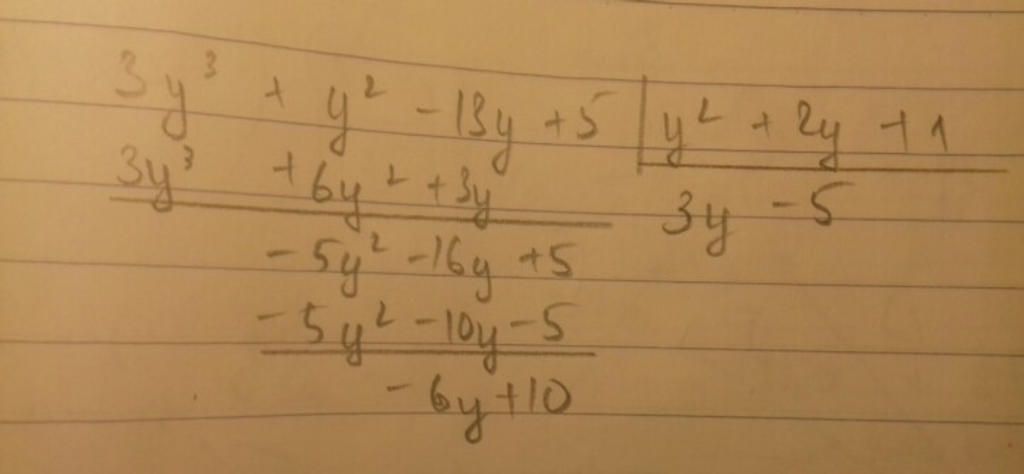 3y³ + y² - 13y + 5 | y² + 2y + 1
3y³ + 6y² + 3y 3y - 5
- 5y² - 16y + 5
- 5y² - 10y - 5
- 6y + 10